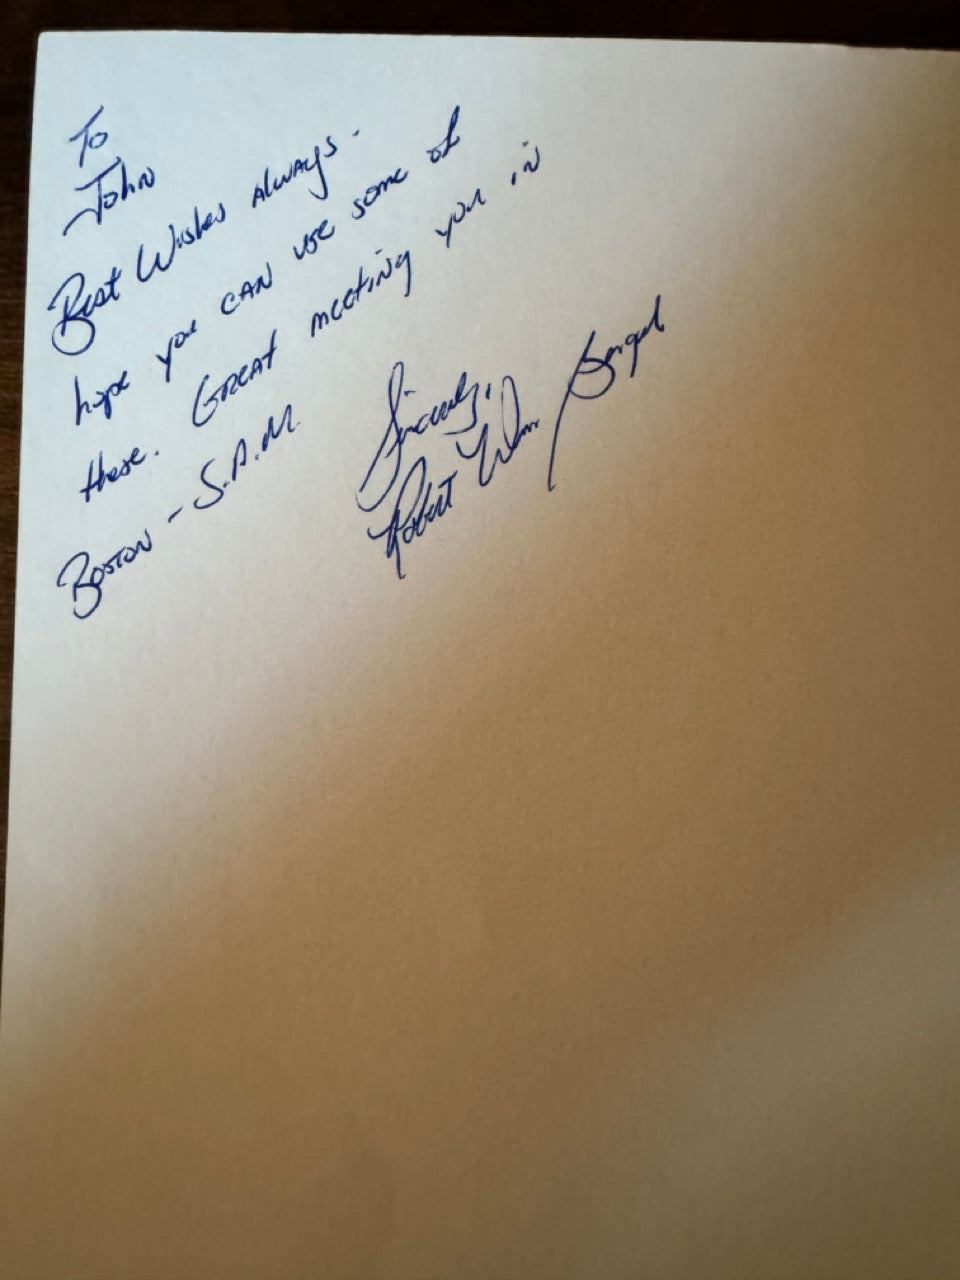 To
John
Best Wishes Always.
hope you can use some of
these. Great meeting you in
Boston - S.A.M.
Sincerely,
Robert